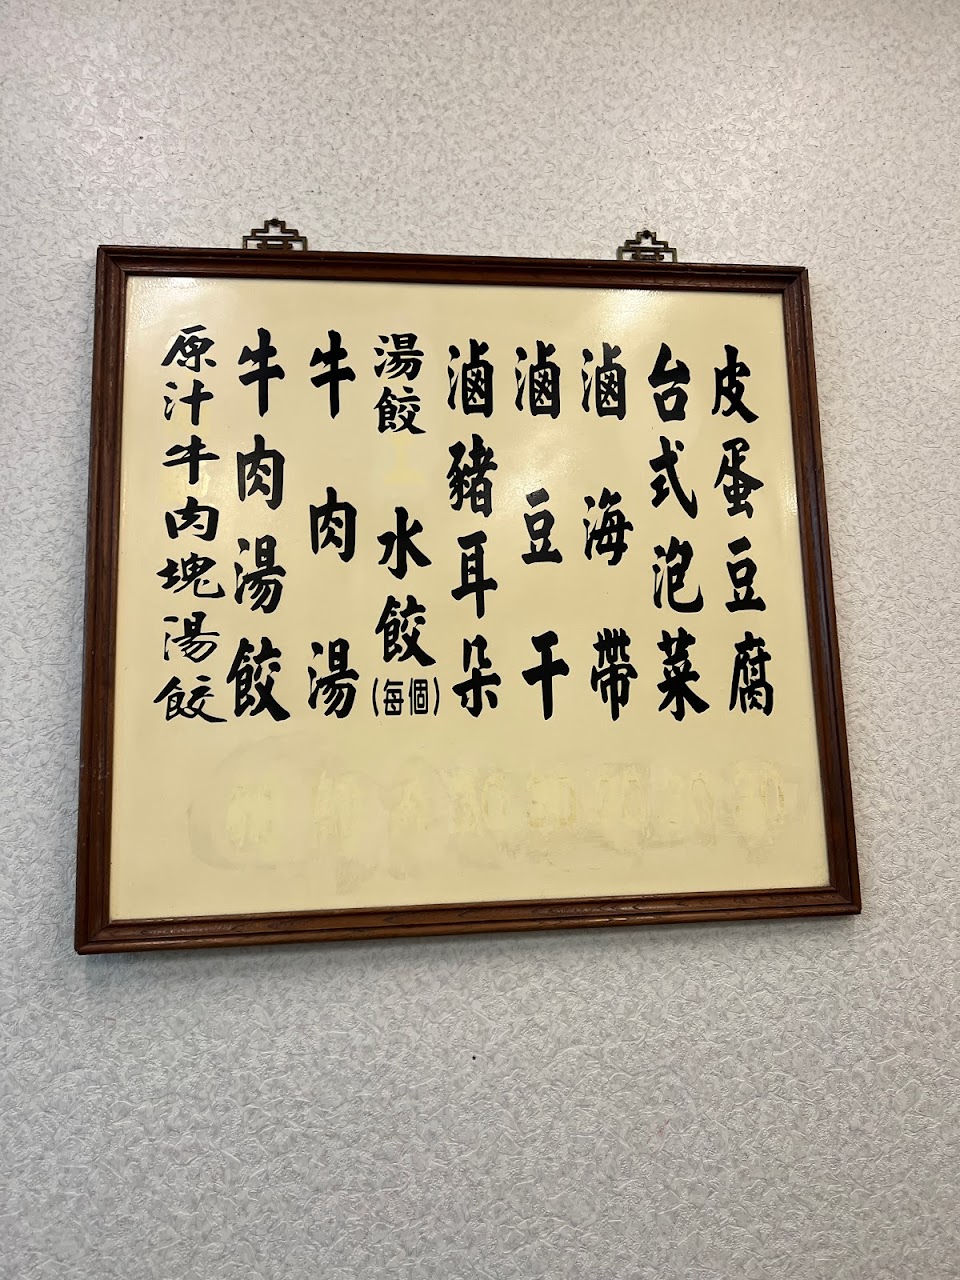 皮蛋豆腐
台式泡菜
滷海帶
滷豆干
滷豬耳朵
湯餃 水餃(每個)
牛肉湯
牛肉湯餃
原汁牛肉塊湯餃